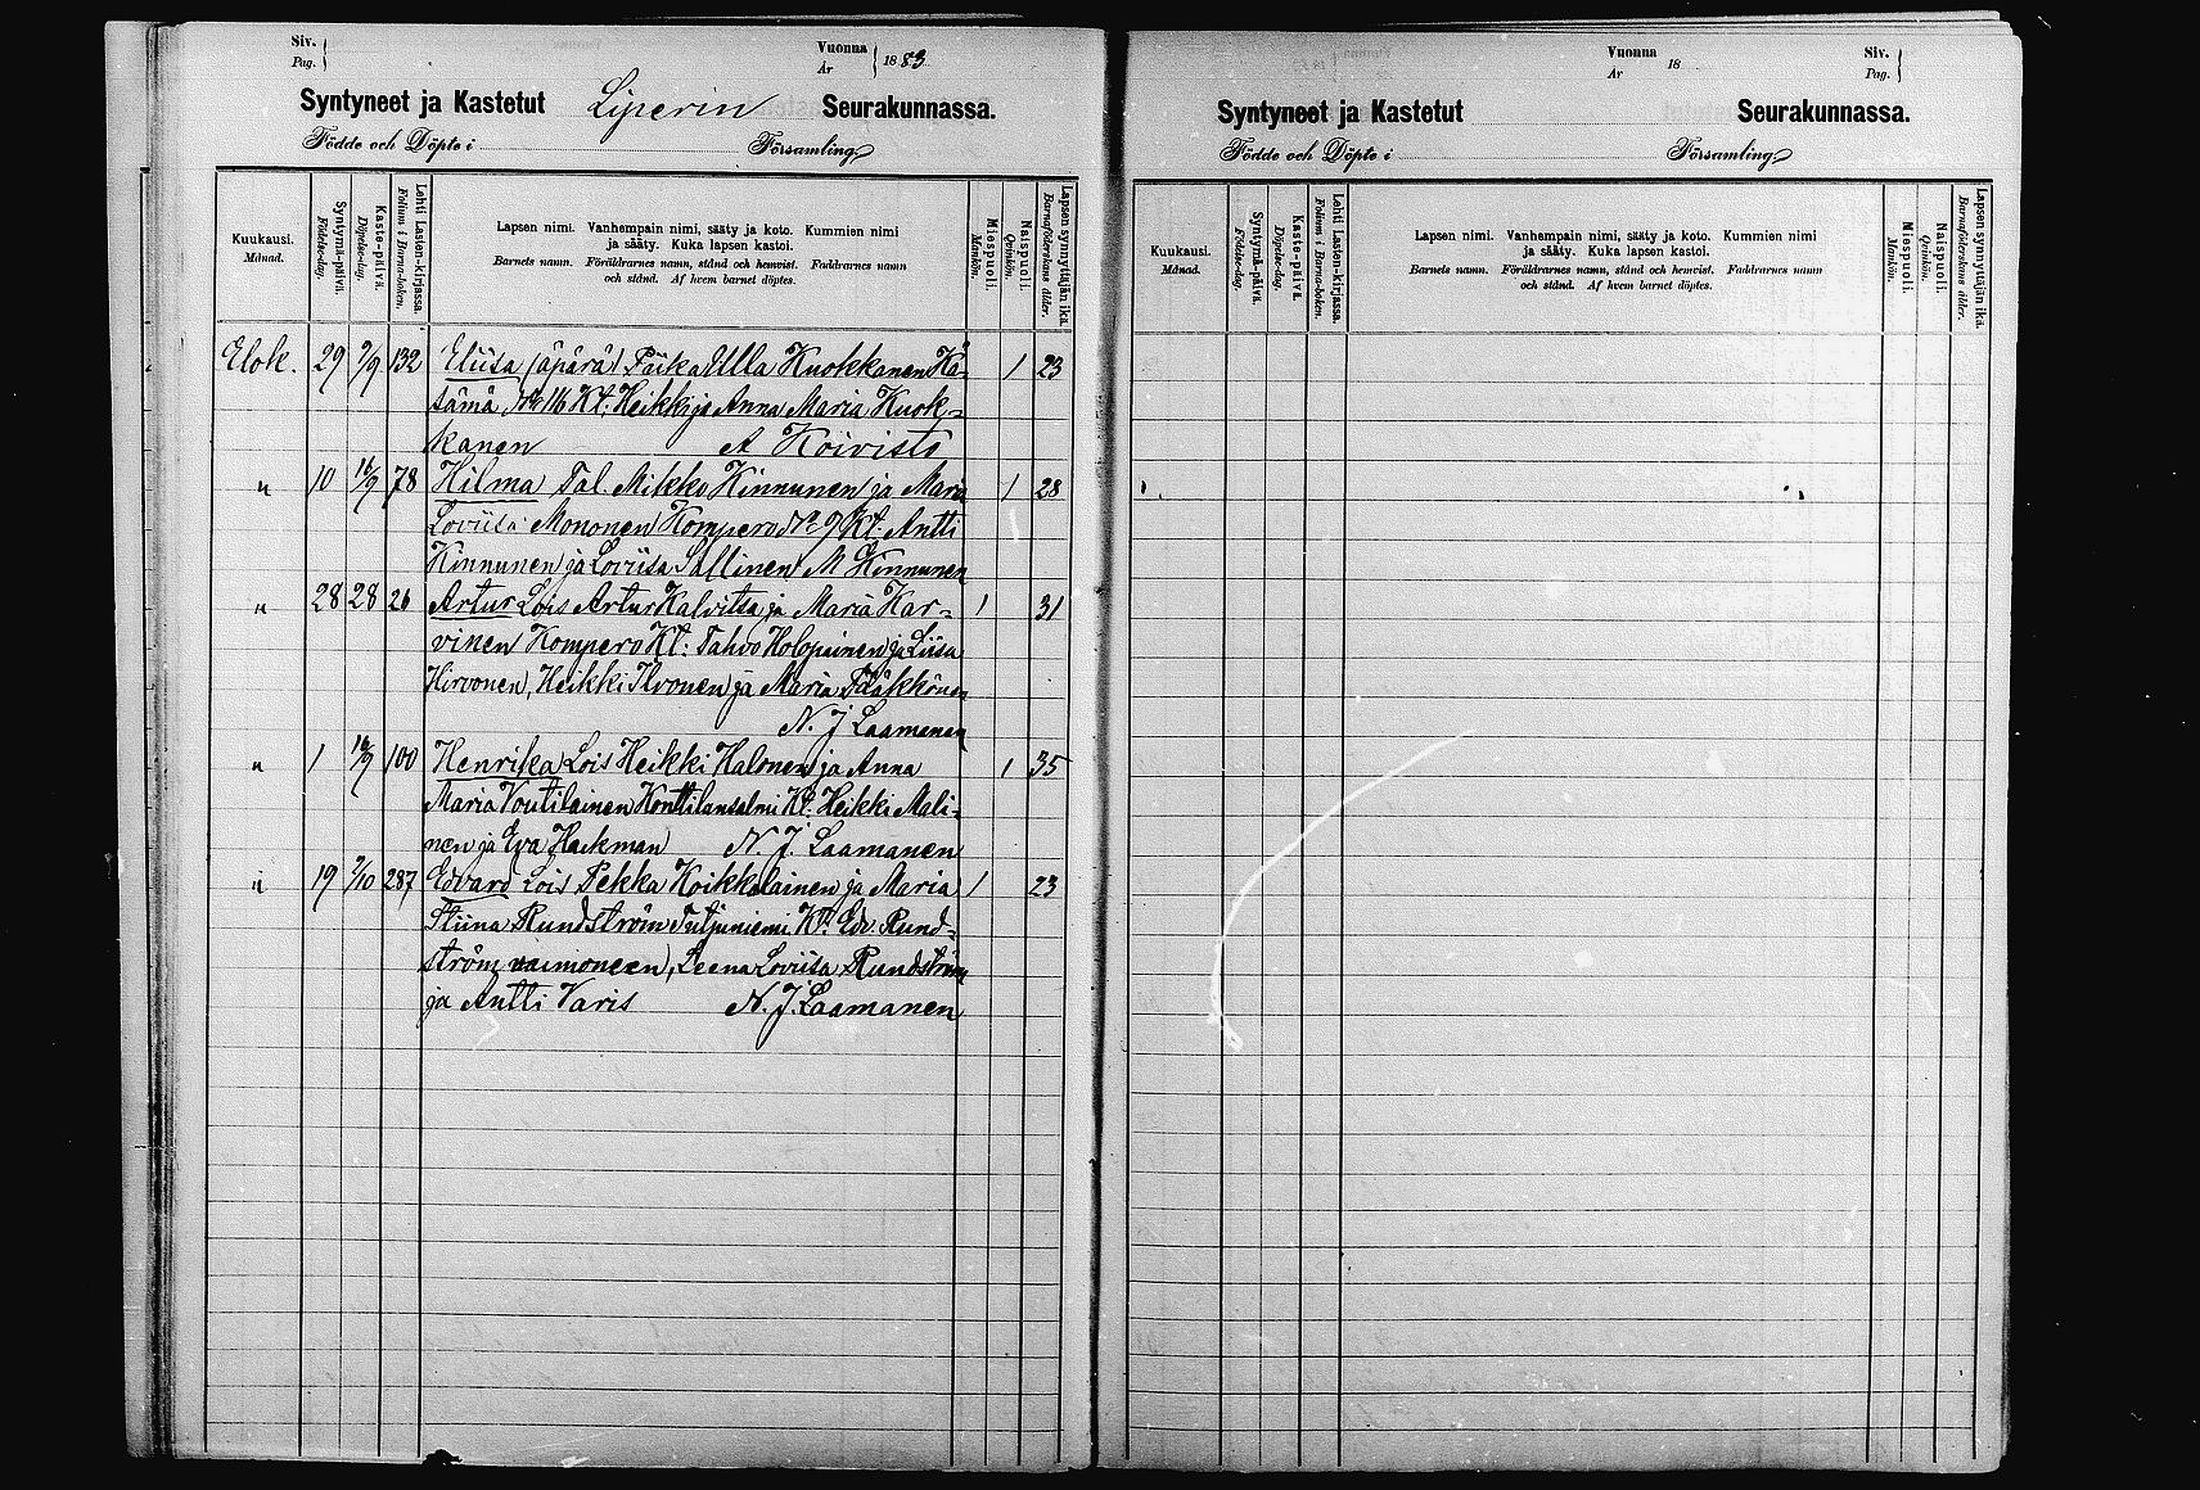 Siv.
Pag.
Vuonna
År
1883
Syntyneet ja Kastetut Liperin Seurakunnassa.
Födde och Döpte i Församling
Kuukausi.
Månad.
Syntymä-päivä.
Födelse-dag.
Kaste-päivä.
Döpelse-dag.
Lehti Lasten-kirjassa.
Folium i Barna-boken.
Lapsen nimi. Vanhempain nimi, sääty ja koto. Kummien nimi
ja sääty. Kuka lapsen kastoi.
Barnets namn. Föräldrarnes namn, stånd och hemvist. Faddrarnes namn
och stånd. Af hvem barnet döptes.
Miespuoli.
Mankön.
Naispuoli.
Qvinkön.
Lapsen synnyttäjän ikä.
Barnaföderskans ålder.
Elok. 29 9/9 132 Eliisa (äpärä) Piika Ulla Kuokkanen Kä- 1 23
sämä No 16 Kt: Heikki ja Anna Maria Kuok-
kanen A Koivisto
" 10 16/9 78 Hilma Tal. Mikko Kinnunen ja Maria 1 28
Loviisa Mononen Kompero No 9 Kt: Antti
Kinnunen ja Loviisa Sallinen M Kinnunen
" 28 28 26 Artur Lois Artur Kalvitsa ja Maria Kar- 1 31
vinen Kompero Kt: Tahvo Holopainen ja Liisa
Hirvonen, Heikki Ilvonen ja Maria Pääkkönen
N. J Laamanen
" 1 16/9 100 Henrika Lois Heikki Halonen ja Anna 1 35
Maria Voutilainen Konttilansalmi Kt: Heikki Mali-
nen ja Eva Hackman N. J. Laamanen
" 19 7/10 287 Edvard Lois Pekka Koikkalainen ja Maria 1 23
Stiina Rundström Tutjuniemi Kt: Edv. Rund-
ström vaimoneen, Leena Loviisa Rundström
ja Antti Varis N. J. Laamanen
Vuonna
År
18
Siv.
Pag.
Syntyneet ja Kastetut Seurakunnassa.
Födde och Döpte i Församling
Kuukausi.
Månad.
Syntymä-päivä.
Födelse-dag.
Kaste-päivä.
Döpelse-dag.
Lehti Lasten-kirjassa.
Folium i Barna-boken.
Lapsen nimi. Vanhempain nimi, sääty ja koto. Kummien nimi
ja sääty. Kuka lapsen kastoi.
Barnets namn. Föräldrarnes namn, stånd och hemvist. Faddrarnes namn
och stånd. Af hvem barnet döptes.
Miespuoli.
Mankön.
Naispuoli.
Qvinkön.
Lapsen synnyttäjän ikä.
Barnaföderskans ålder.